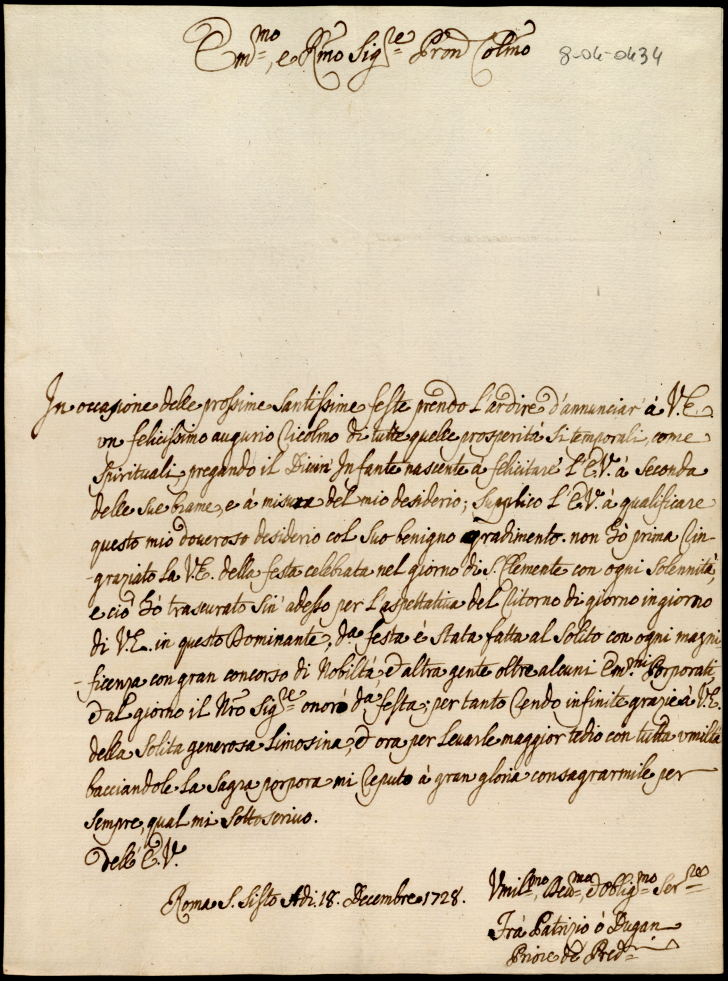 Em.mo, e Rmo Sig.re Pron Colmo 8-04-0434
In occasione delle prossime Santissime feste prendo l'ardire d'annunciar' à V.E.
vn felicissimo augurio ricolmo di tutte quelle prosperità si temporali, come
spirituali, pregando il Divin' Infante nascente à felicitare l'E.V. à seconda
delle sue brame, e à misura del mio desiderio; supplico l'E.V. à qualificare
questo mio doveroso desiderio col suo benigno gradimento. non hò prima rin-
graziato la V.E. della festa celebrata nel giorno di S. Clemente con ogni solennità,
e ciò hò trascurato sin' adesso per l'aspettativa del ritorno di giorno in giorno
di V.E. in questo Dominante, da festa è stata fatta al solito con ogni magni
-ficenza con gran concorso di Nobiltà, d'altra gente oltre alcuni Em.mi Porporati,
d'al giorno il Nro Sig.re onorò da festa; per tanto rendo infinite grazie à V.E.
della solita generosa limosina, ed ora per levarle maggior tedio con tutta vmiltà
bacciandole la sagra porpora mi reputo à gran gloria consagrarmile per
sempre, qual mi sottoscrivo.
Dell' E.V.
Roma S. Sisto Adi. 18. Decembre 1728.
Vmil.mo, Dev.mo, ed Oblig.mo Ser.re
Frà Patrizio ó Dugan
Priore de Pred.ri